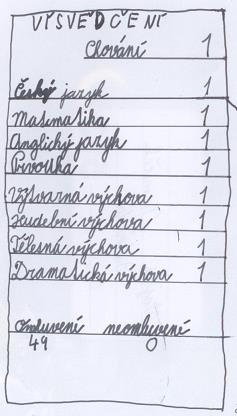 VYSVĚDČENÍ
Chování 1
Český jazyk 1
Matematika 1
Anglický jazyk 1
Prvouka 1
Výtvarná výchova 1
Hudební výchova 1
Tělesná výchova 1
Dramatická výchova 1
omluvené neomluvené
49 0